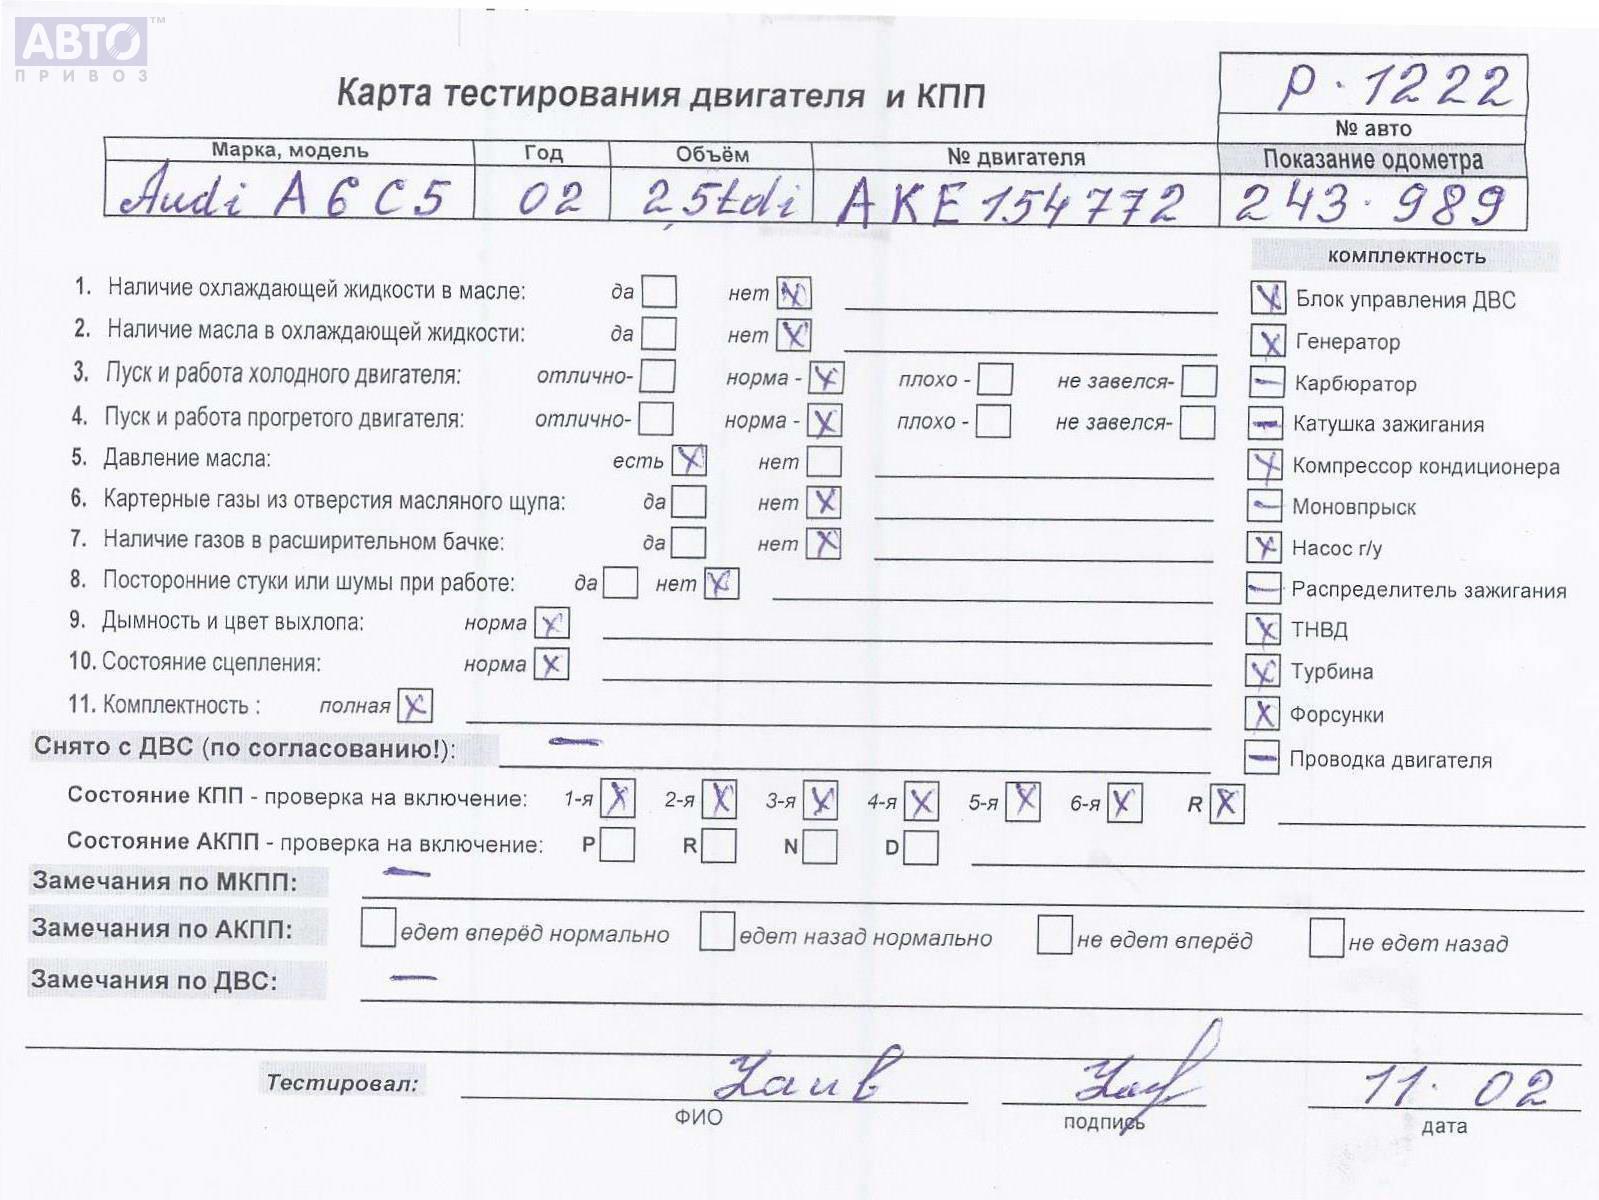 АВТО™
ПРИВОЗ
Карта тестирования двигателя и КПП
р.1222
№ авто
Марка, модель Год Объём № двигателя Показание одометра
Audi A6C5 02 2,5tdi AKE154772 243.989
комплектность
1. Наличие охлаждающей жидкости в масле: да нет X
2. Наличие масла в охлаждающей жидкости: да нет X
3. Пуск и работа холодного двигателя: отлично- норма - X плохо - не завелся-
4. Пуск и работа прогретого двигателя: отлично- норма - X плохо - не завелся-
5. Давление масла: есть X нет
6. Картерные газы из отверстия масляного щупа: да нет X
7. Наличие газов в расширительном бачке: да нет X
8. Посторонние стуки или шумы при работе: да нет X
9. Дымность и цвет выхлопа: норма X
10. Состояние сцепления: норма X
11. Комплектность : полная X
X Блок управления ДВС
X Генератор
– Карбюратор
– Катушка зажигания
X Компрессор кондиционера
– Моновпрыск
X Насос г/у
– Распределитель зажигания
X ТНВД
X Турбина
X Форсунки
– Проводка двигателя
Снято с ДВС (по согласованию!): –
Состояние КПП - проверка на включение: 1-я X 2-я X 3-я X 4-я X 5-я X 6-я X R X
Состояние АКПП - проверка на включение: P R N D
Замечания по МКПП: –
Замечания по АКПП: едет вперёд нормально едет назад нормально не едет вперёд не едет назад
Замечания по ДВС: –
Тестировал: 11.02
ФИО подпись дата